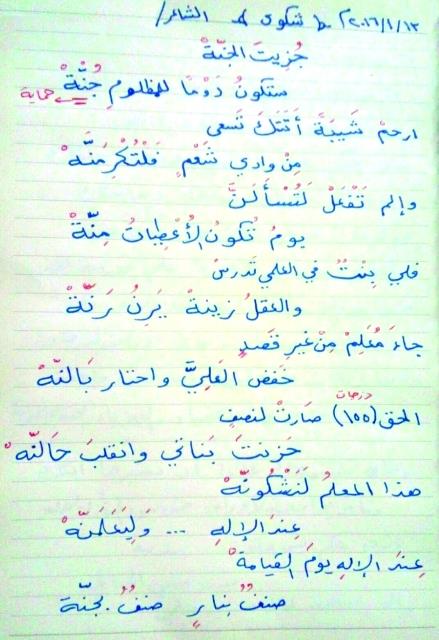 ٢٠١٦/١/١٣م شكوى الشاعر/
جُزيتَ الجنّةْ
ستكونُ دَوماً للمظلومِ جُنّةْ حماية
ارحمْ شَيبَةً أتَتكَ تَسعى
مِنْ وادي شَعْمٍ فَلْتُكْرِمَنَّهْ
وإلم تَفْعَلْ لَتُسْأَلَنَّ
يومَ تكونُ الأُعْطِياتُ مِنّةْ
فلي بِنْتٌ في العلمي تَدرسْ
والعقلُ زينةْ يَرِنُ رَنّةْ
جاءَ مُعَلِمْ مِنْ غيرِ قَصدٍ
خَفض العَليَّ واحتار بَالنّهْ
الحق (١٥٥) صَارتْ لنصفٍ
درجات
حَزِنتَ بَناتي وانقلبَ حَالنّهْ
هذا المعلمُ لَنَشْكُونّهْ
عِندَ الإلهِ ... وَلِيَعْلَمَنّهْ
عِندَ الإلهِ يومَ القيامةْ
صنفٌ بنارٍ صنفٌ بجنّة